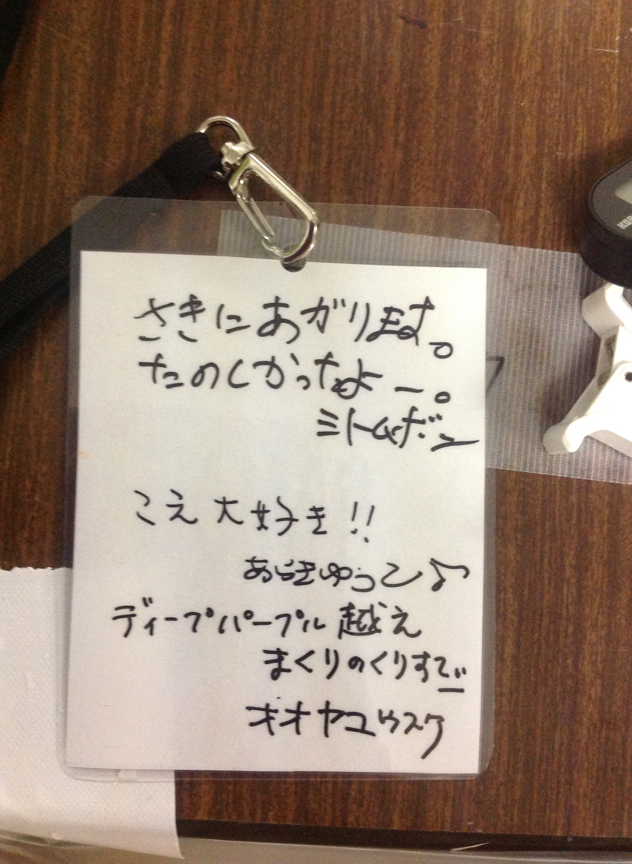 さきにあがります。
たのしかったよー。
ミトムボン
こえ大好き!!
あらきゆうこ♪
ディープパープル越え
まくりのくりすで
オオヤユウスケ